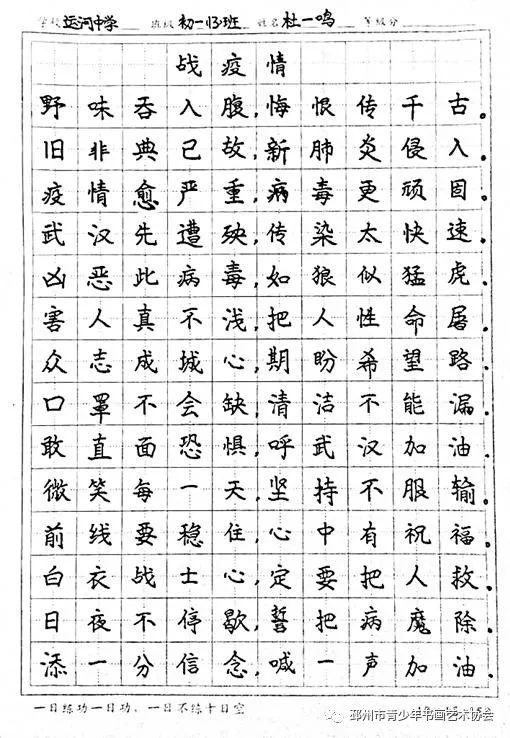 学校 运河中学 班级 初一13班 姓名 杜一鸣 等级分
战疫情
野味吞入腹,悔恨传千古。
旧非典已故,新肺炎侵入。
疫情愈严重,病毒更顽固。
武汉先遭殃,传染太快速。
凶恶此病毒,如狼似猛虎。
害人真不浅,把人性命屠。
众志成城心,期盼希望路。
口罩不会缺,清洁不能漏。
敢直面恐惧,呼武汉加油。
微笑每一天,坚持不服输。
前线要稳住,心中有祝福。
白衣战士心,定要把人救。
日夜不停歇,誓把病魔除。
添一分信念,喊一声加油。
一日练功一日功,一日不练十日空
邳州市青少年书画艺术协会